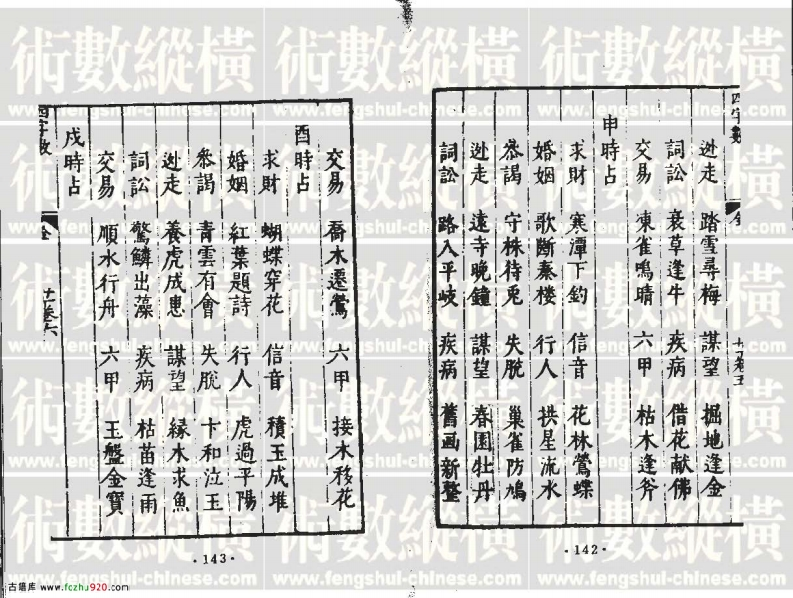 四字數
迯走 踏雪尋梅 謀望 掘地逢金
詞訟 衰草逢牛 疾病 借花献佛
交易 凍雀鳴晴 六甲 枯木逢斧
申時占
求財 寒潭下釣 信音 花林鶯蝶
婚姻 歌斷秦楼 行人 拱星流水
叅謁 守株待兎 失脫 巢雀防鳩
迯走 遠寺晚鐘 謀望 春園牡丹
詞訟 路入平岐 疾病 舊画新整
·142·
交易 喬木遷鶯 六甲 接木移花
酉時占
求財 蝴蝶穿花 信音 積玉成堆
婚姻 紅葉題詩 行人 虎過平陽
叅謁 青雲有會 失脫 卞和泣玉
迯走 養虎成患 謀望 緣木求魚
詞訟 驚鱗出藻 疾病 枯苗逢雨
交易 順水行舟 六甲 玉盤金寶
戌時占
四字數
·143·
術數縱橫
www.fengshui-chinese.com
術數縱橫
www.fengshui-chinese.com
古籍库 www.fczhu920.com